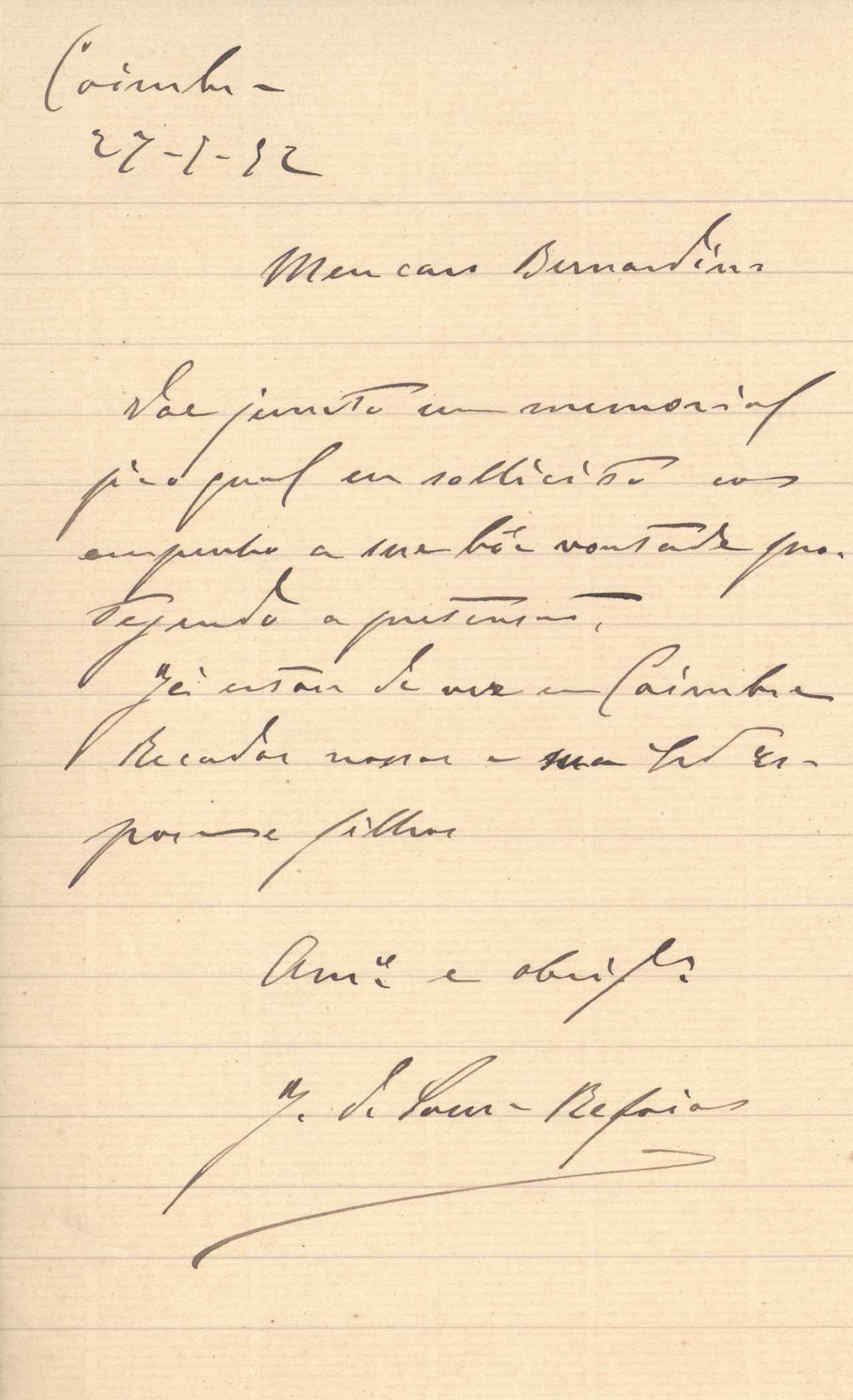 Coimbra
27-5-92
Meu caro Bernardino
Vae junto um memorial
pelo qual eu sollicito com
empenho a sua bôa vontade pro-
tegendo a pretensão.
Já estou de vez em Coimbra
Recados nossos a sua Ex.ma Es-
posa e filhos
Am.º e obrig.do
J. de Sousa Refoios